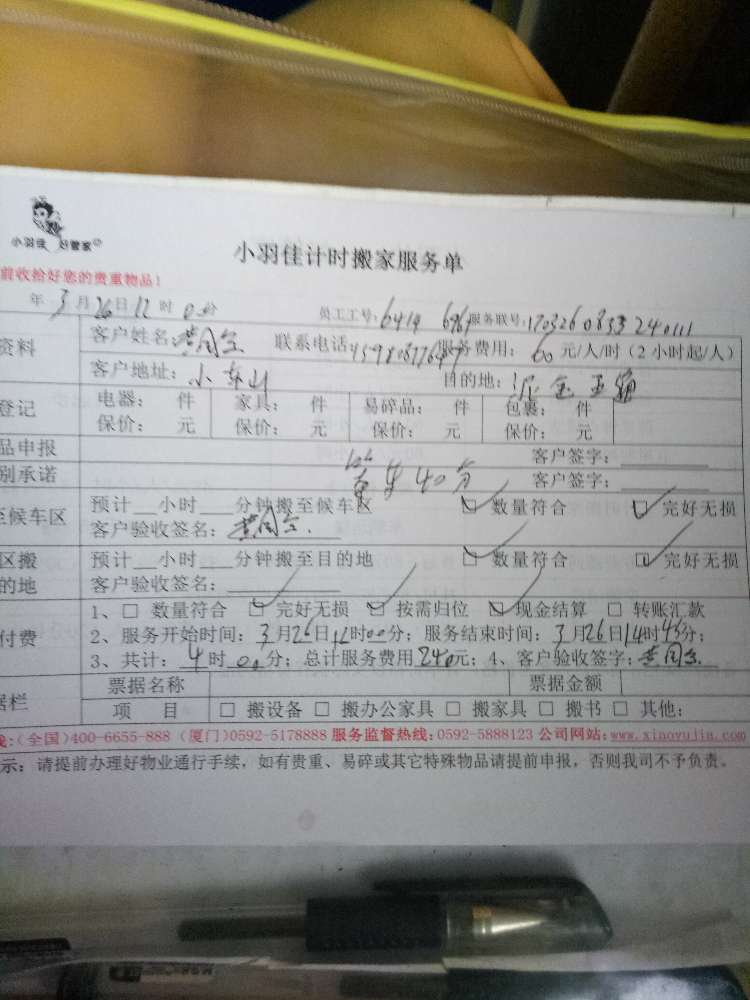 小羽佳 好管家
小羽佳计时搬家服务单
前收拾好您的贵重物品!
年3月26日12时00分 员工工号:6414 696 服务联号:1703260833240111
资料 客户姓名: 联系电话 服务费用:60元/人/时(2小时起/人)
客户地址:小东山 目的地:
登记 电器: 件 家具: 件 易碎品: 件 包裹: 件
保价: 元 保价: 元 保价: 元 保价: 元
品申报 客户签字:
别承诺 40分 客户签字:
至候车区 预计__小时___分钟搬至候车区 ☑ 数量符合 ☑ 完好无损
客户验收签名:
区搬 预计__小时___分钟搬至目的地 ☑ 数量符合 ☑ 完好无损
的地 客户验收签名:
付费 1、□ 数量符合 ☑ 完好无损 ☑ 按需归位 ☑ 现金结算 □ 转账汇款
2、服务开始时间:3月26日12时00分;服务结束时间:3月26日14时45分;
3、共计:4时00分;总计服务费用240元;4、客户验收签字:
据栏 票据名称 票据金额
项 目 □ 搬设备 □ 搬办公家具 □ 搬家具 □ 搬书 □ 其他:
线:(全国)400-6655-888 (厦门)0592-5178888 服务监督热线:0592-5888123 公司网站:www.xiaoyujia.com
示:请提前办理好物业通行手续,如有贵重、易碎或其它特殊物品请提前申报,否则我司不予负责。